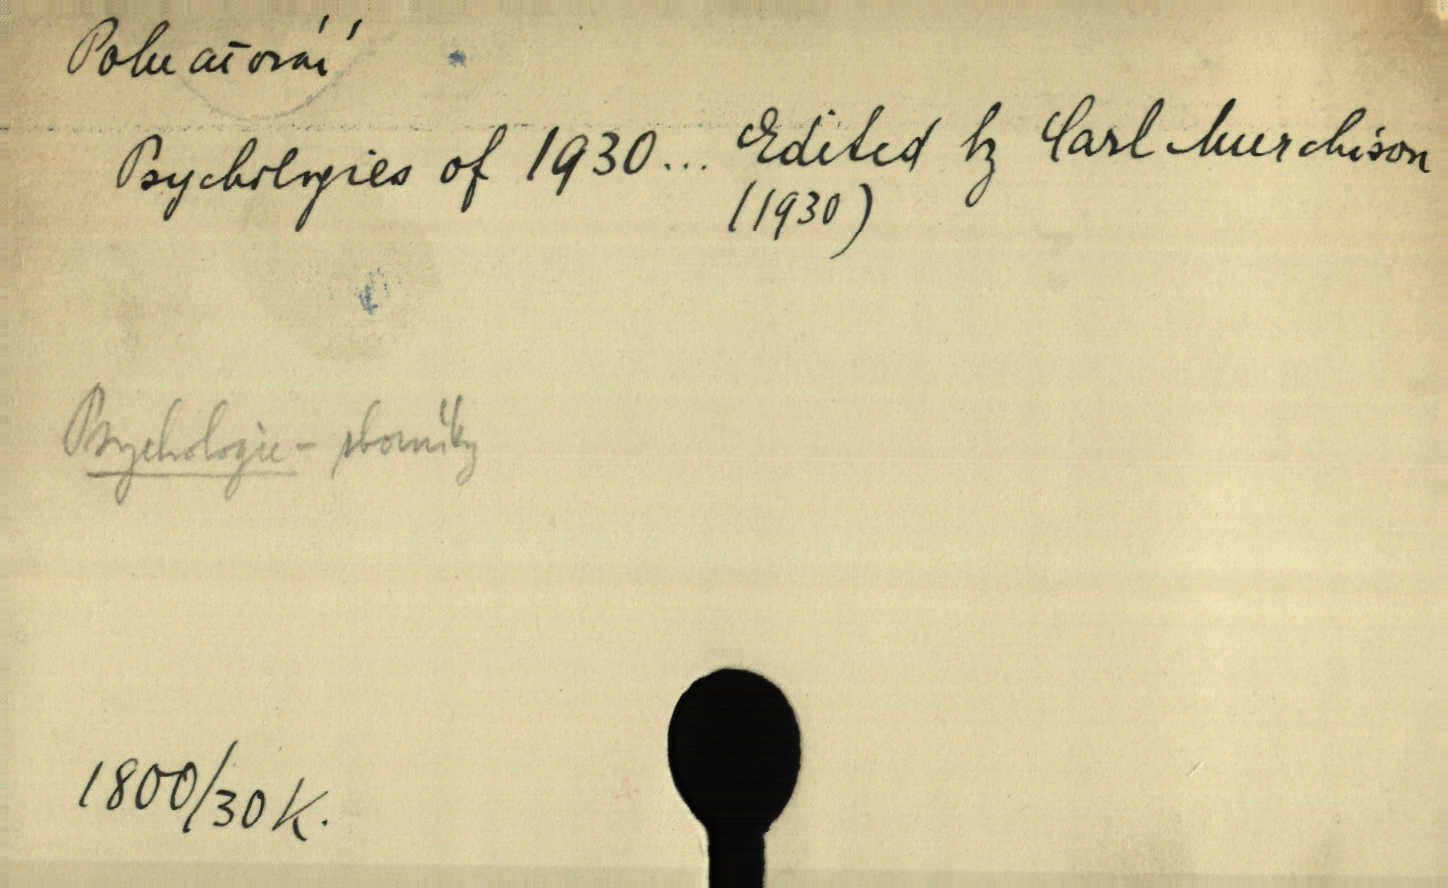 Pokračování
Psychologies of 1930... Edited by Carl Murchison
(1930)
Psychologie - sborníky
1800/30 K.